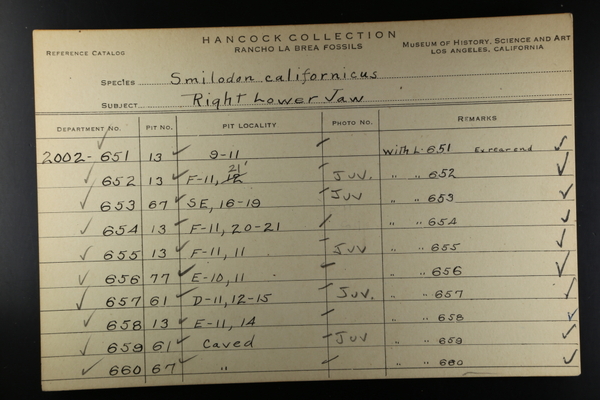 HANCOCK COLLECTION
REFERENCE CATALOG RANCHO LA BREA FOSSILS MUSEUM OF HISTORY, SCIENCE AND ART
LOS ANGELES, CALIFORNIA
SPECIES Smilodon californicus
SUBJECT Right Lower Jaw
DEPARTMENT NO. PIT NO. PIT LOCALITY PHOTO NO. REMARKS
2002-651 13 9-11 With L-651
21'
652 13 F-11, 12 Juv. " " 652
653 67 SE, 16-19 Juv " " 653
654 13 F-11, 20-21 " " 654
655 13 F-11, 11 Juv " " 655
656 77 E-10, 11 " " 656
657 61 D-11, 12-15 Juv. " " 657
658 13 E-11, 14 " " 658
659 61 Caved Juv " " 659
660 67 " " " 660